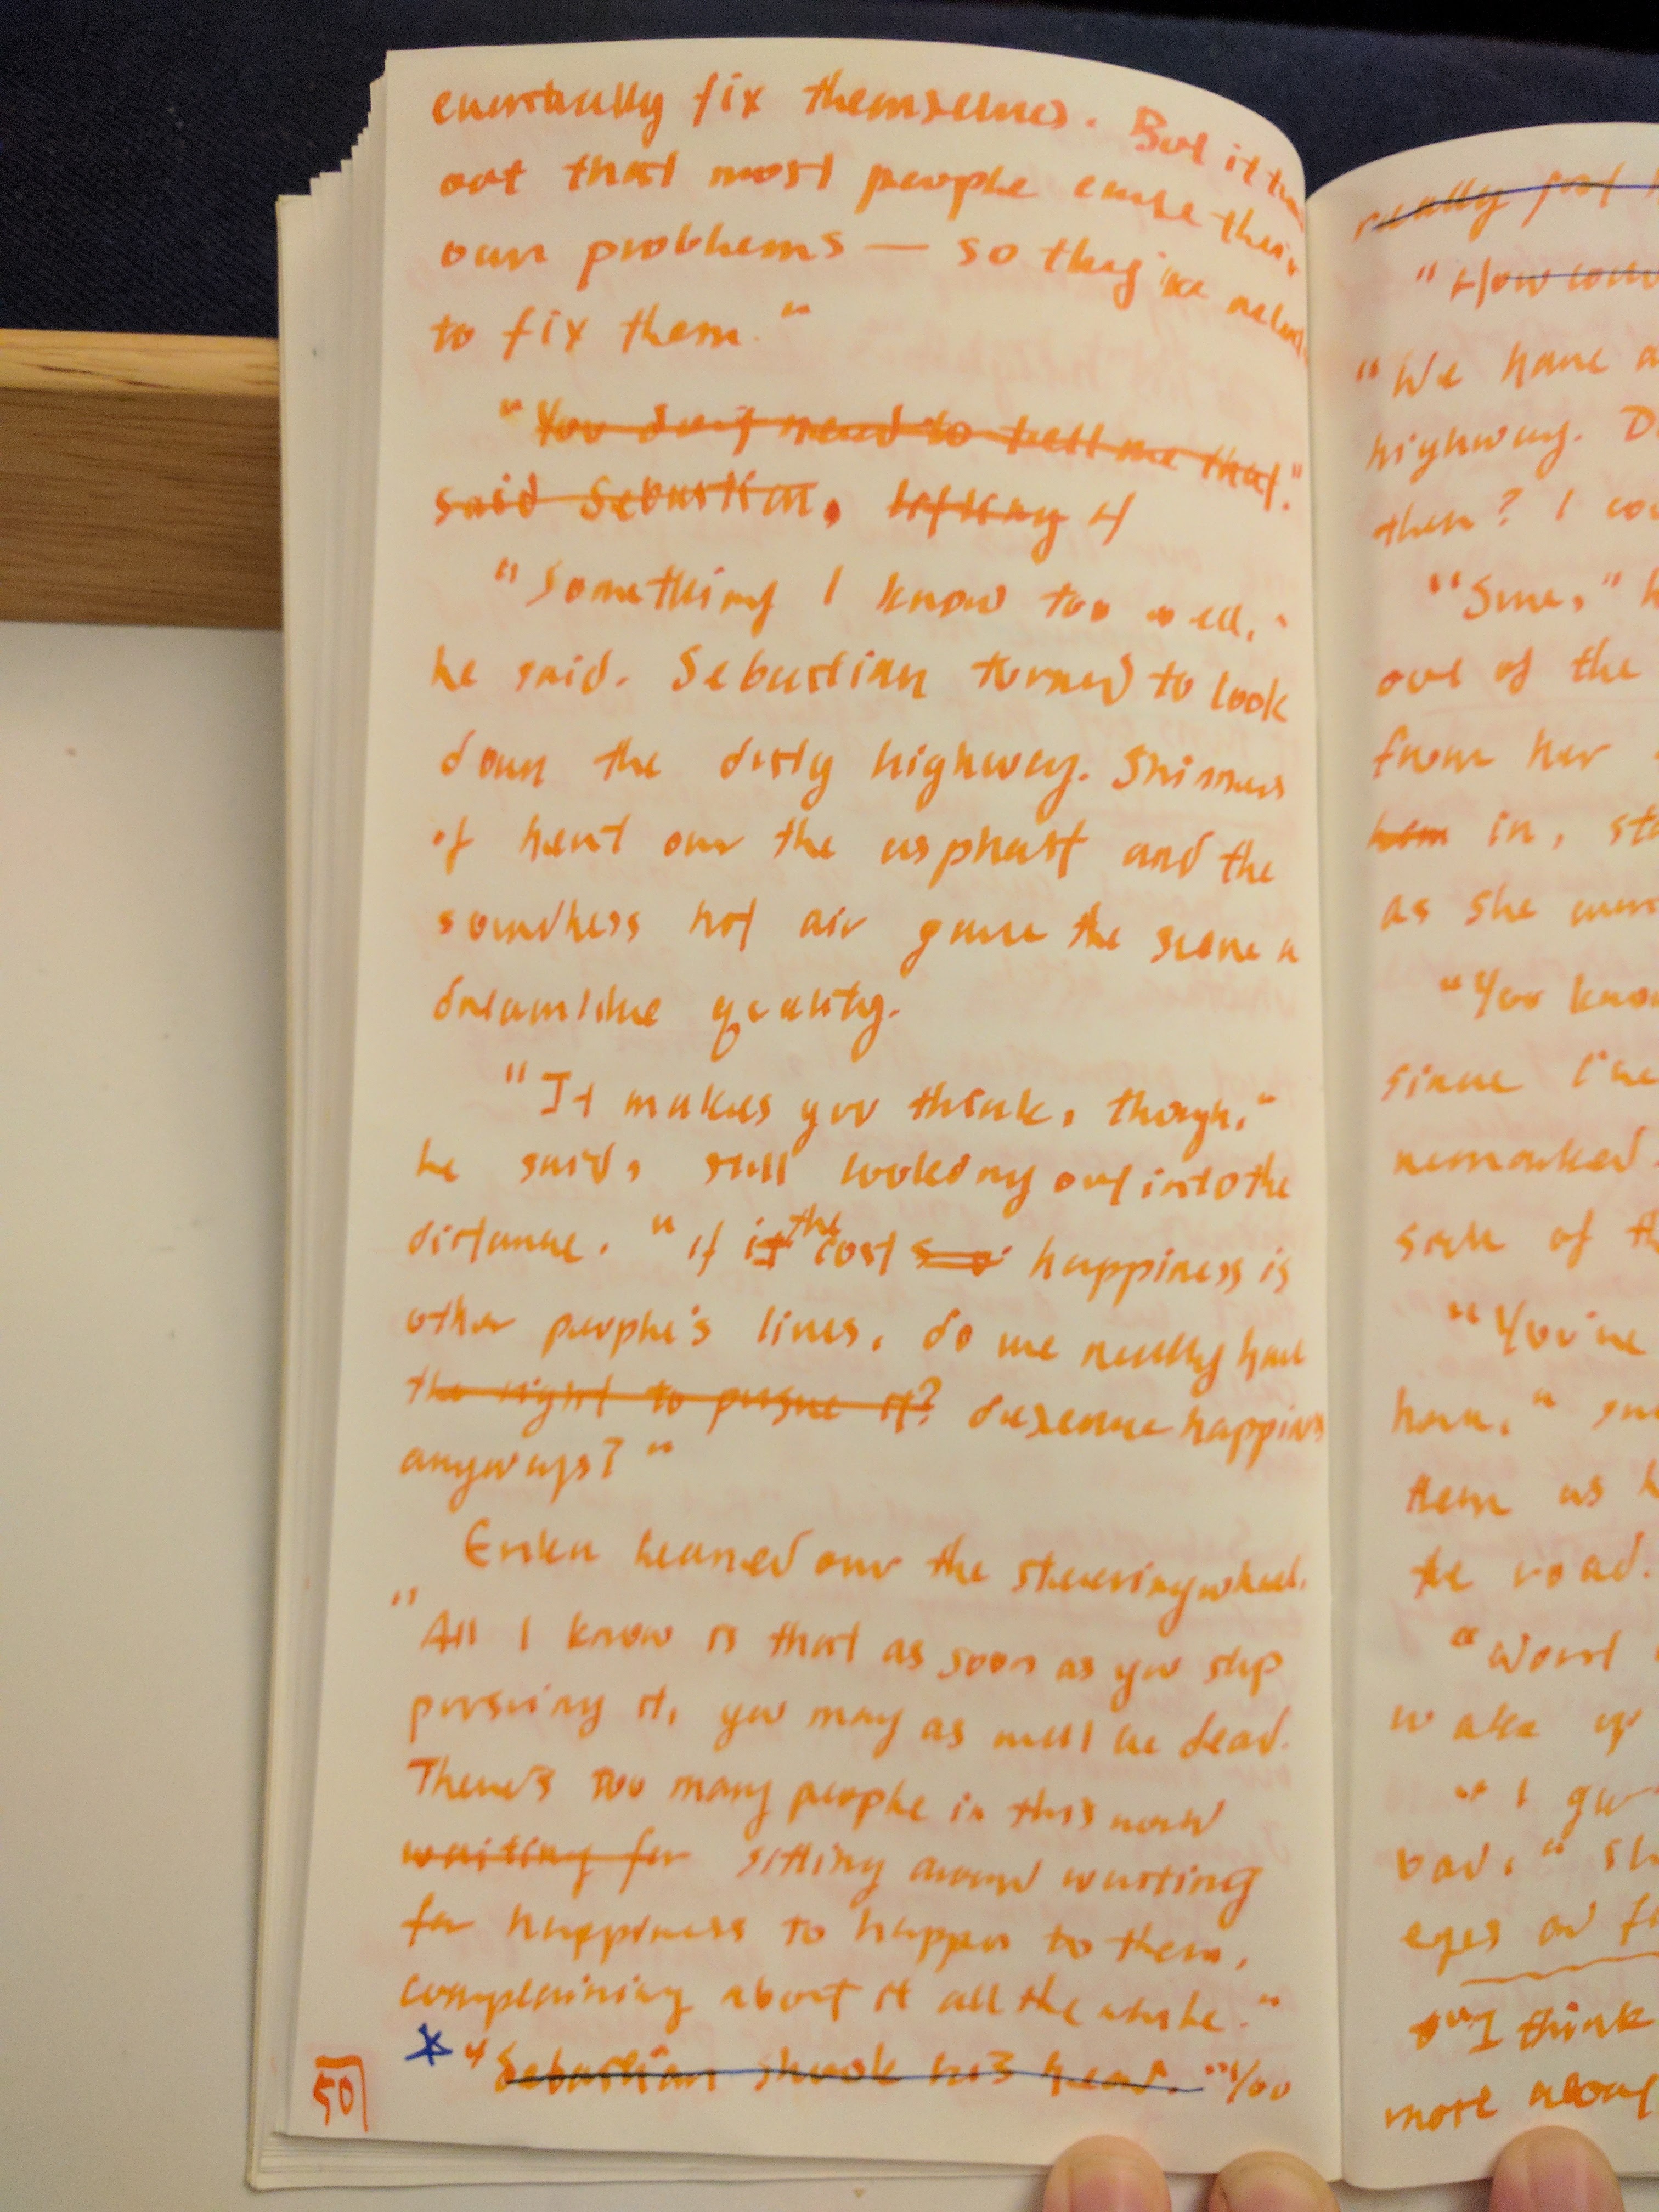 eventually fix themselves. But it
out that most people cause their
own problems — so they're
to fix them."
"You don't need to tell me that."
said Sebastian, lifting
"Something I know too well,"
he said. Sebastian turned to look
down the dirty highway. Shimmers
of heat over the asphalt and the
soundless hot air gave the scene a
dreamlike quality.
"It makes you think, though,"
he said, still looking out into the
distance. "If it the cost happiness is
other people's lives, do we really have
the right to pursue it? deserve happiness
anyways?"
Erika leaned over the steering wheel.
"All I know is that as soon as you stop
pursuing it, you may as well be dead.
There's too many people in this world
waiting for sitting around waiting
for happiness to happen to them,
complaining about it all the while."
"Sebastian shook his head. "You
50
really just
"How
"We have a
highway.
then? I
"Sure,"
out of the
from her
him in,
as she
"You
since I've
remarked.
sick of
"You're
have,"
them as
the road.
"Worst
wake up
"I
bad,"
eyes
"I think
more about